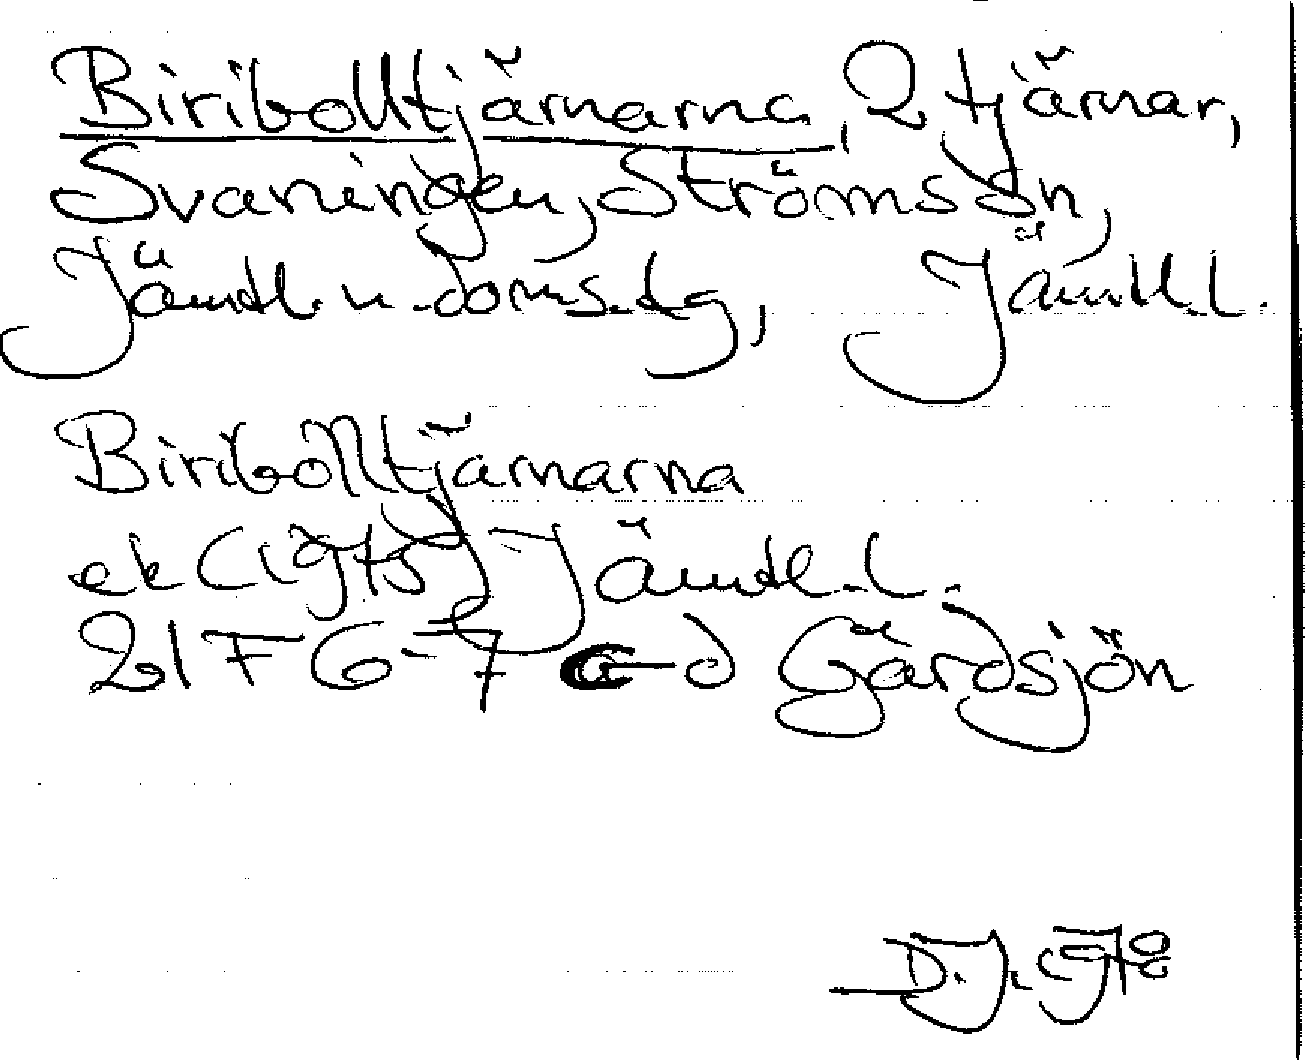 Biribolltjärnarna, 2 tjärnar,
Svaningen, Ströms sn,
Jämtl. n. doms. Jämtl. l.
Biribolltjärnarna
ek (1975) Jämtl. l.
21F 6-7 c-d Gärdsjön
D.J. 1978